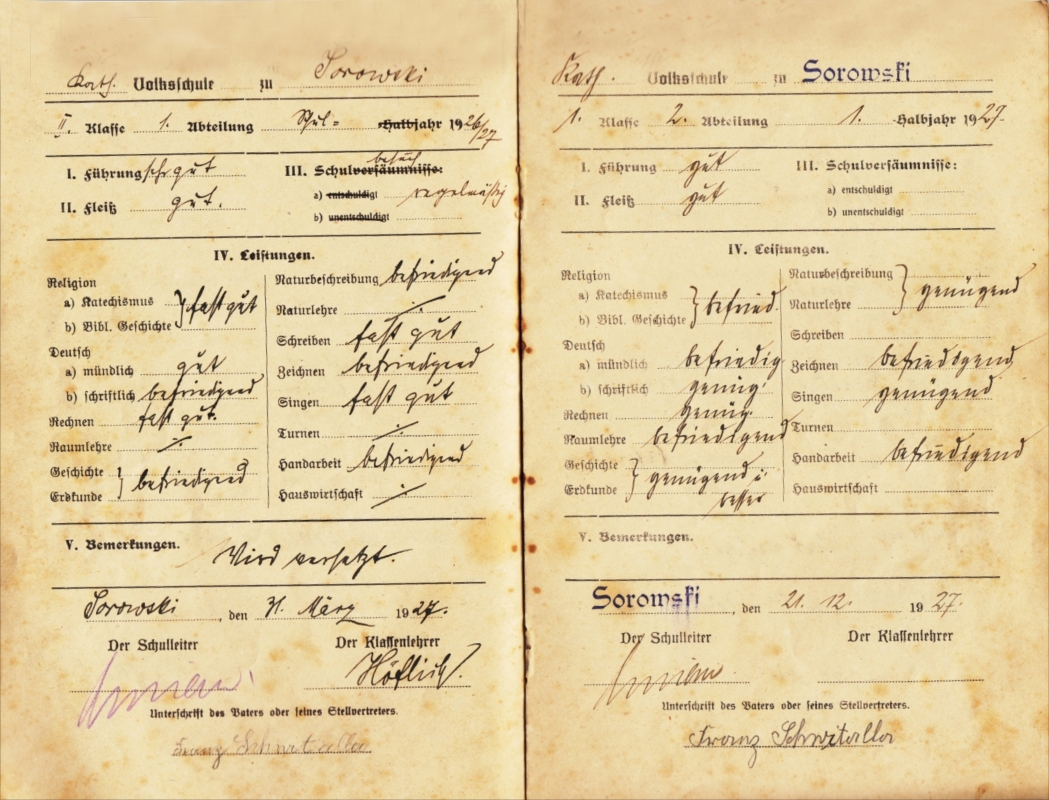 Kath. Volksschule zu Sorowski
II. Klasse 1. Abteilung Schul= Halbjahr 1926/27
I. Führung sehr gut
II. Fleiß gut.
III. Schulversäumnisse: besuch
a) entschuldigt regelmäßig
b) unentschuldigt
IV. Leistungen.
Religion
a) Katechismus } fast gut
b) Bibl. Geschichte
Deutsch
a) mündlich gut
b) schriftlich befriedigend
Rechnen fast gut.
Raumlehre ·/.
Geschichte } befriedigend
Erdkunde
Naturbeschreibung befriedigend
Naturlehre ·/.
Schreiben fast gut
Zeichnen befriedigend
Singen fast gut
Turnen ·/.
Handarbeit befriedigend
Hauswirtschaft ·/.
V. Bemerkungen. Wird versetzt.
Sorowski, den 31. März 1927.
Der Schulleiter Der Klassenlehrer
Höflich
Unterschrift des Vaters oder seines Stellvertreters.
Franz Schwitalla
Kath. Volksschule zu Sorowski
1. Klasse 2. Abteilung 1. Halbjahr 1927.
I. Führung gut
II. Fleiß gut
III. Schulversäumnisse:
a) entschuldigt
b) unentschuldigt
IV. Leistungen.
Religion
a) Katechismus } befried.
b) Bibl. Geschichte
Deutsch
a) mündlich befriedig
b) schriftlich genüg.
Rechnen genüg.
Raumlehre befriedigend
Geschichte } genügend u.
Erdkunde besser
Naturbeschreibung } genügend
Naturlehre
Schreiben
Zeichnen befriedigend
Singen genügend
Turnen
Handarbeit befriedigend
Hauswirtschaft
V. Bemerkungen.
Sorowski, den 21. 12. 1927.
Der Schulleiter Der Klassenlehrer
Unterschrift des Vaters oder seines Stellvertreters.
Franz Schwitalla